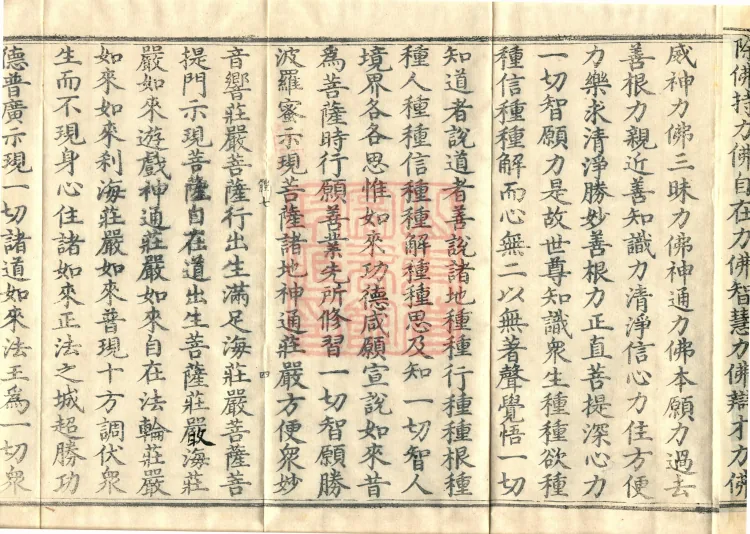 除佛持力佛自在力佛智慧力佛辯才力佛
威神力佛三昧力佛神通力佛本願力過去
善根力親近善知識力清淨信心力住方便
力樂求清淨勝妙善根力正直菩提深心力
一切智願力是故世尊知識衆生種種欲種
種信種種解而心無二以無著聲覺悟一切
知道者說道者善說諸地種種行種種根種
種人種種信種種解種種思及知一切智人
境界各各思惟如來功德咸願宣說如來昔
爲菩薩時行願善業先所修習一切智願勝
波羅蜜示現菩薩諸地神通莊嚴方便衆妙
七 四
音響莊嚴菩薩行出生滿足海莊嚴菩薩菩
提門示現菩薩自在道出生菩薩莊嚴海莊
嚴如來遊戲神通莊嚴如來自在法輪莊嚴
如來如來利海莊嚴如來普現十方調伏衆
生而不現身心住諸如來正法之城超勝功
德普廣示現一切諸道如來法王爲一切衆